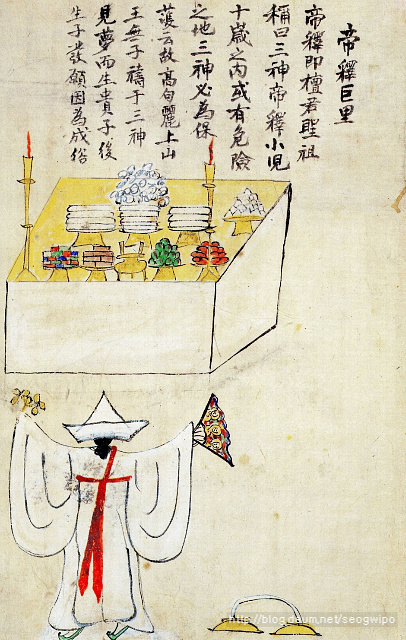 帝釋巨里
帝釋即檀君聖祖
稱曰三神帝釋小児
十歲之内或有危險
之地三神必為保
護云故高句麗上山
王無子禱于三神
見夢而生貴子後
生子發願因為成俗
http://blog.daum.net/seogwipo